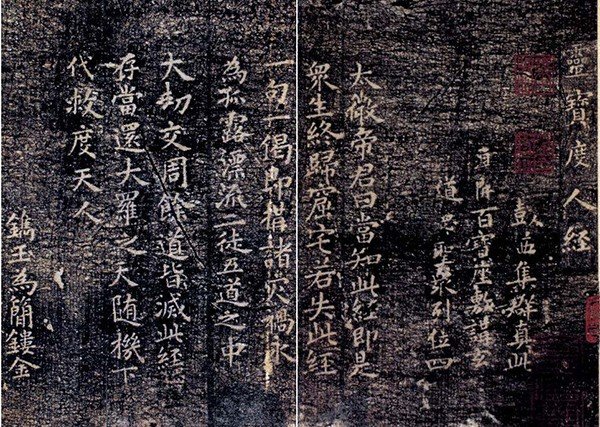 靈寶度人經
集群真此
百寶座敷講玄
道列位四
太微帝君曰當知此經即是
衆生終歸窟宅若失此經
一句一偈即構諸災禍永
為孤露漂派二徒五道之中
大劫交周餘道皆滅此經
存當還大羅之天随機下
代救度天人
鐫玉為簡鏤金